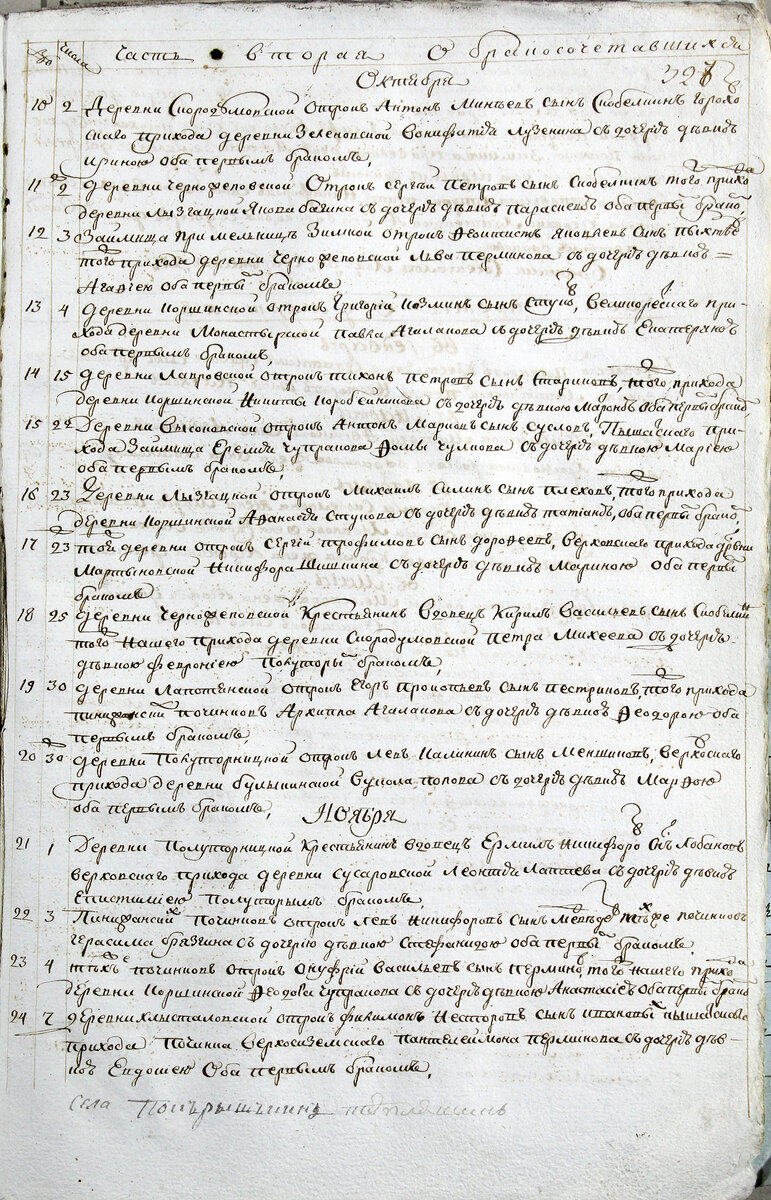 No числа часть вторая О бракосочетавшихся
Октября
327
10 2 Деревни Скородумовской отрок Антон Минѣев сын Скобелкин Горохо
вскаго прихода деревни Зеленовской Вонифатия Лузенина с дочерью девкою
Ириною оба первым браком
11 2 деревни Чернопеновской Отрок Сергѣй Петров сын Скобелкин того прихода
деревни Лызгацкой Якова багина с дочерью девкою Парасковьею Оба первым браком
12 3 Займища при мельнице Зимной отрок Феоктист Яковлев сын
того прихода деревни Чернопеновской Льва Перминова с дочерью девкою
Агафиею оба первым браком
13 4 деревни Коршинской отрок Григорий Козмин сын Ступов, Великорецкаго при
хода деревни Монастырской Павла Агалакова с дочерью девкою Екатериною
оба первым браком
14 15 деревни Лавровской отрок Тихон Петров сын Стариков, того прихода
деревни Коршинской Никиты Коробейникова с дочерью девкою Марфою оба первым браком
15 22 Деревни Высоковской отрок Антон Марков сын Суслов, Пышацкаго при
хода Займища Еремеи Чупракова Фомы Чулкова с дочерью девкою Мариею
оба первым браком
16 23 Деревни Лызгацкой отрок Михаил Силин сын Плехов, того прихода
деревни Коршинской Афанасия Ступова с дочерью девкою Татианою, оба первым браком
17 23 той деревни отрок Сергий Трофимов сын Дорофеев, Верховскаго прихода деревни
Мартыновской Никифора Шишкина с дочерью девкою Мариною Оба первым
браком
18 25 деревни Чернопеновской Крестьянин вдовец Кирил Васильев сын Скобелкин
того нашего прихода деревни Скородумовской Петра Михеева с дочерью
девкою Феврониею Полуторым браком
19 30 деревни Лаптенской отрок Егор Прокопьев сын Пестриков, того прихода
починков Архиппа Агалакова с дочерью девкою Феодорою оба
первым браком
20 30 деревни Полуторницкой отрок Лев Калинин сын Меншиков, верховскаго
прихода деревни булычинской Вукола попова с дочерью девкою Марфою
оба первым браком
Ноября
21 1 Деревни Полуторницкой Крестьянин вдовец Ермил Никифоров сын Лобанов
верховскаго прихода деревни Сусаровской Леонтия Лаптева с дочерью девкою
Епистимиею Полуторым браком
22 3 починков отрок Лев Никифоров сын тех же починков
Герасима брязгина с дочерию девкою Стефанидою оба первым браком
23 4 тех же починков отрок Онуфрий Васильев сын Перминов, того нашего прихода
деревни Коршинской Феодора Чупракова с дочерью девкою Анастасиею Оба первым браком
24 7 деревни Хлысталовской отрок Филимон Несторов сын пышацкаго
прихода Починка Верхосиземскаго Пантелеймона Перминова с дочерью дев
кою Евдокиею Оба первым браком
Села